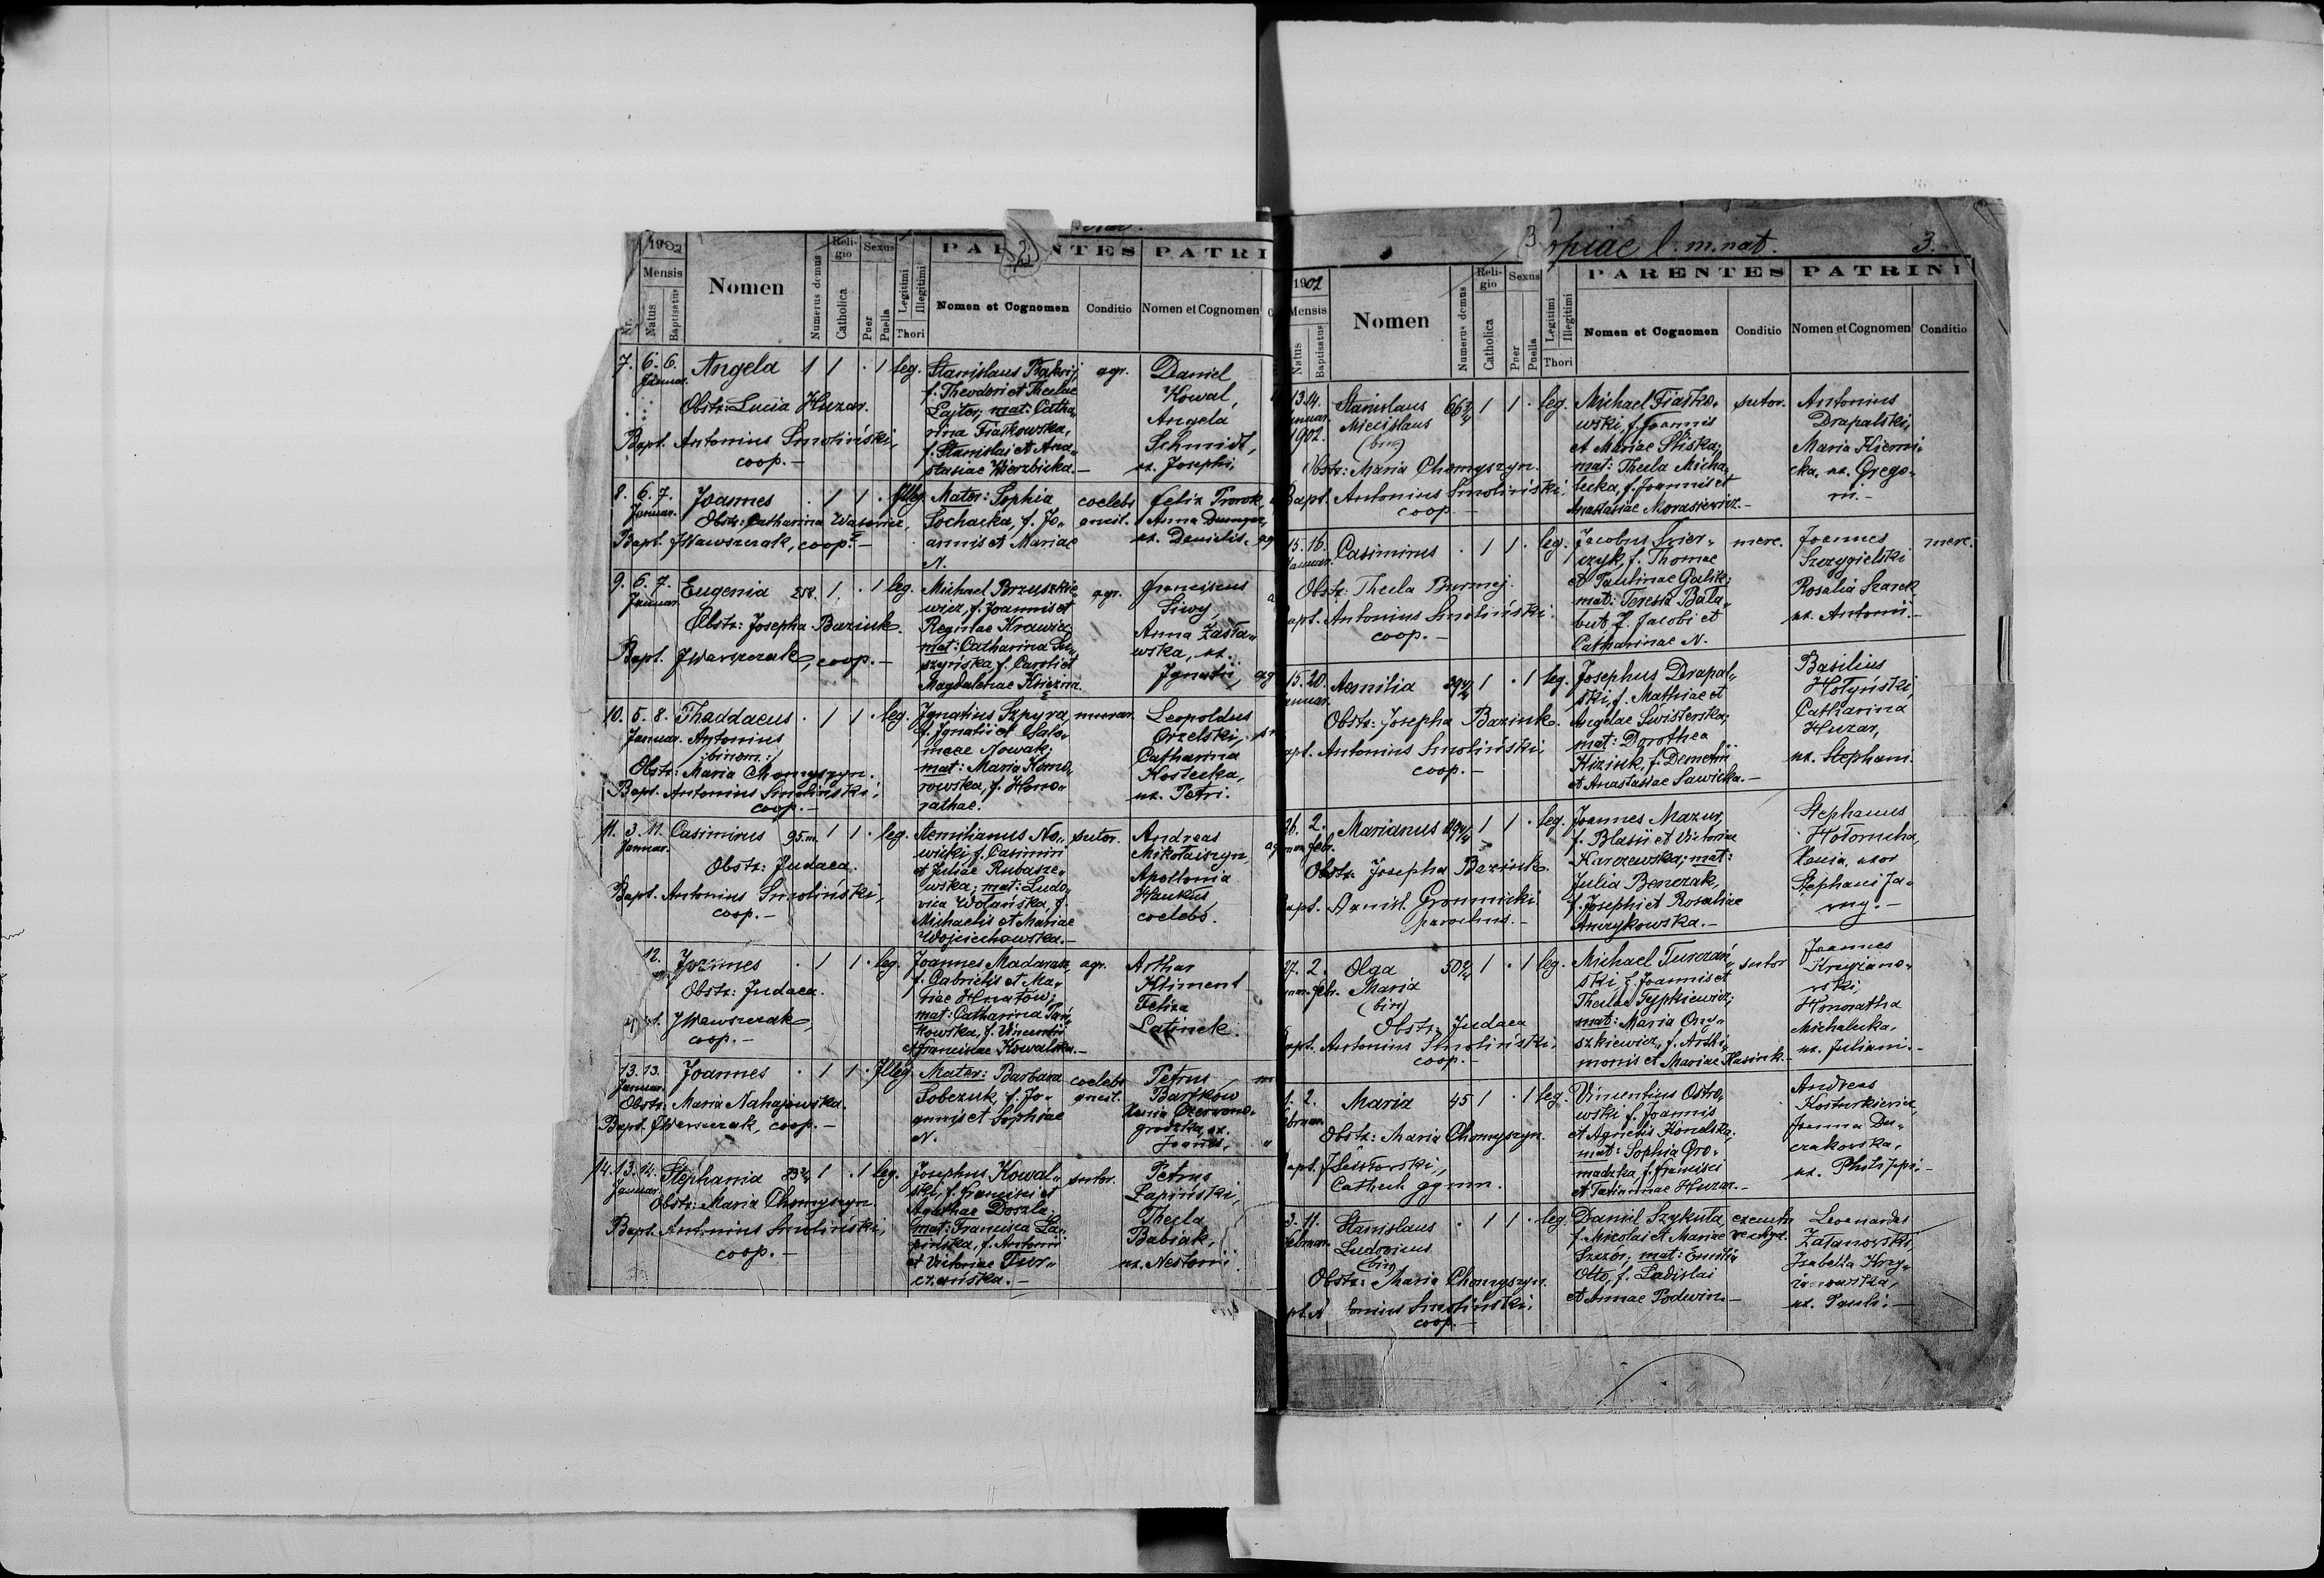 2
1902
Mensis
Natus
Baptisatus
Nomen
Numerus domus
Religio
Catholica
Sexus
Puer
Puella
Legitimi
Illegitimi
Thori
PARENTES
Nomen et Cognomen
Conditio
PATRI
Nomen et Cognomen
7. 6. 6. Angela 1 1 . 1 leg.
Januar.
Obstr: Lucia Huzar.
Bapt. Antonius Smoliński,
coop. -
Stanislaus
f. Theodori et Theclae
Lajter; mat: Catha,
rina Fiałkowska,
f. Stanislai et Ana,
stasiae Wierzbicka. -
agr.
Daniel
Kowal,
Angela
Schmidt,
ux. Josephi,
8. 6. 7. Joannes . 1 1 . Illeg.
Januar.
Obstr: Catharina
Bapt. JWawszczak, coop. -
Mater: Sophia
Sochacka, f. Jo„
annis et Mariae
N.
coelebs
ancil.
Felix
Anna
ux. Danielis.
9. 6. 7. Eugenia 258. 1 . 1 leg.
Januar.
Obstr: Josepha Baziuk.
Bapt. JWawszczak, coop. -
Michael Brzuszkie,
wicz, f. Joannis et
Reginae Krawiec
mat: Catharina Su,
szyńska f. Caroli et
Magdalenae
agr.
Franciscus
Siwy
Anna Zasła„
wska, ux.
Ignatii,
10. 5. 8. Thaddaeus . 1 1 . leg.
Januar. Antonius
/binom:/
Obstr: Maria Chomyszyn.
Bapt. Antonius Smoliński,
coop. -
Ignatius Szpyra,
f. Ignatii et Salo„
meae Nowak;
mat: Maria Komo,
rowska, f. Hono„
rathae.
murar.
Leopoldus
Orzelski,
Catharina
Kostecka,
ux. Petri.
11. 3. 11. Casimirus 95. 1 1 . leg.
Januar.
Obstr: Judaea.
Bapt. Antonius Smoliński,
coop. -
Aemilianus No„
wicki f. Casimiri
et Juliae Rubasze„
wska; mat: Ludo„
vica Wolańska, f.
Michaelis et Mariae
Wojciechowska. -
sutor.
Andreas
Mikołaiszyn,
Apollonia
coelebs.
12. Joannes . 1 1 . leg.
Obstr: Judaea.
JWawszczak,
coop. -
Joannes Madarasz,
f. Gabrielis et Ma„
riae Hnatów;
mat: Catharina
kowska, f. Vincentii
et Franciscae Kowalska. -
agr.
Arthur
Kliment
Felixa
Latinek.
13. 13. Joannes . 1 1 . Illeg.
Januar.
Obstr: Maria Nahajowska.
Bapt. JWawszczak, coop. -
Mater: Barbara
Sobczuk, f. Jo„
annis et Sophiae
N.
coelebs
ancil.
Petrus
Bartków
Xenia Czerwono„
grodzka, ux.
Joannis,
14. 13. 14. Stephania 1 . 1 leg.
Januar.
Obstr: Maria Chomyszyn.
Bapt. Antonius Smoliński,
coop. -
Josephus Kowal„
ski, f. Francisci et
Agathae Doszla;
mat: Francisca Ła„
pińska, f. Antonii
et Victoriae Tur„
czańska. -
sutor.
Petrus
Łapiński,
Thecla
Babiak,
ux. Nestorii.
3
opiae l. m. nat. 3.
1902
Mensis
Natus
Baptisatus
Nomen
Numerus domus
Religio
Catholica
Sexus
Puer
Puella
Legitimi
Illegitimi
Thori
PARENTES
Nomen et Cognomen
Conditio
PATRINI
Nomen et Cognomen
Conditio
13. 14. Stanislaus 1 1 . leg.
Januar. Miecislaus
1902. (bin)
Obstr: Maria Chomyszyn.
Bapt. Antonius Smoliński,
coop. -
Michael Fiałko„
wski, f. Joannis
et Mariae Sliska;
mat: Thecla Micha„
lucka, f. Joannis et
Anastasiae Morasiewicz. -
sutor.
Antonius
Drapalski,
Maria
cka, ux. Grego„
rii. -
15. 16. Casimirus . 1 1 . leg.
Januar.
Obstr: Thecla Burmej.
Bapt. Antonius Smoliński.
coop. -
Jacobus Świer„
czyk, f. Thomae
et Paulinae Galik;
mat: Teresia Bała„
but f. Jacobi et
Catharinae N.
merc.
Joannes
Szczygielski
Rosalia
ux. Antonii. -
merc.
15. 20. Aemilia 1 . 1 leg.
Januar.
Obstr: Josepha Baziuk.
Bapt. Antonius Smoliński,
coop. -
Josephus Drapal„
ski, f. Mathiae et
Angelae Świsterska;
mat: Dorothea
Hiziuk, f. Demetrii
et Anastasiae Sawicka. -
Basilius
Hołyński,
Catharina
Huzar,
ux. Stephani.
26. 2. Marianus 1 1 . leg.
febr.
Obstr: Josepha Baziuk.
Bapt. Gromnicki
parochus. -
Joannes Mazur,
f. Blasii et Victoriae
Karczewska; mat:
Julia Benczak,
f. Josephi et Rosaliae
Anczykowska. -
Stephanus
Hołomcha,
Xenia, uxor
Stephani Ja„
remy. -
27. 2. Olga 1 . 1 leg.
febr. Maria
(bin)
Obstr: Judaea
Bapt. Antonius Smoliński,
coop. -
Michael Turczań„
ski, f. Joannis et
Theclae Typkiewicz;
mat: Maria Ony„
szkiewicz, f. Arthi„
monis et Mariae Hasiuk.
sutor
Joannes
Krzyżano„
wski,
Honoratha
Michalucka,
ux. Juliani. -
1. 2. Maria 45 1 . 1 leg.
Februar.
Obstr: Maria Chomyszyn.
Catech. gymn.
Vincentius Ostro„
wski f. Joannis
et Agnetis Konelska;
mat: Sophia Gro„
madzka f. Francisci
et Tatiannae Huzar. -
Andreas
Kosturkiewicz,
Joanna Du„
czakowska,
ux. Philippi. -
3. 11. Stanislaus . 1 1 . leg.
Februar. Ludovicus
(bin)
Obstr: Maria Chomyszyn.
Antonius Smoliński,
coop. -
Daniel Szykuła,
f. Nicolai et Mariae
Szczór; mat: Emilia
Otto, f. Ladislai
et Annae Podwin. -
Leonardus
Zatanowski,
Isabella Krzy„
żanowska,
ux. Pauli. -